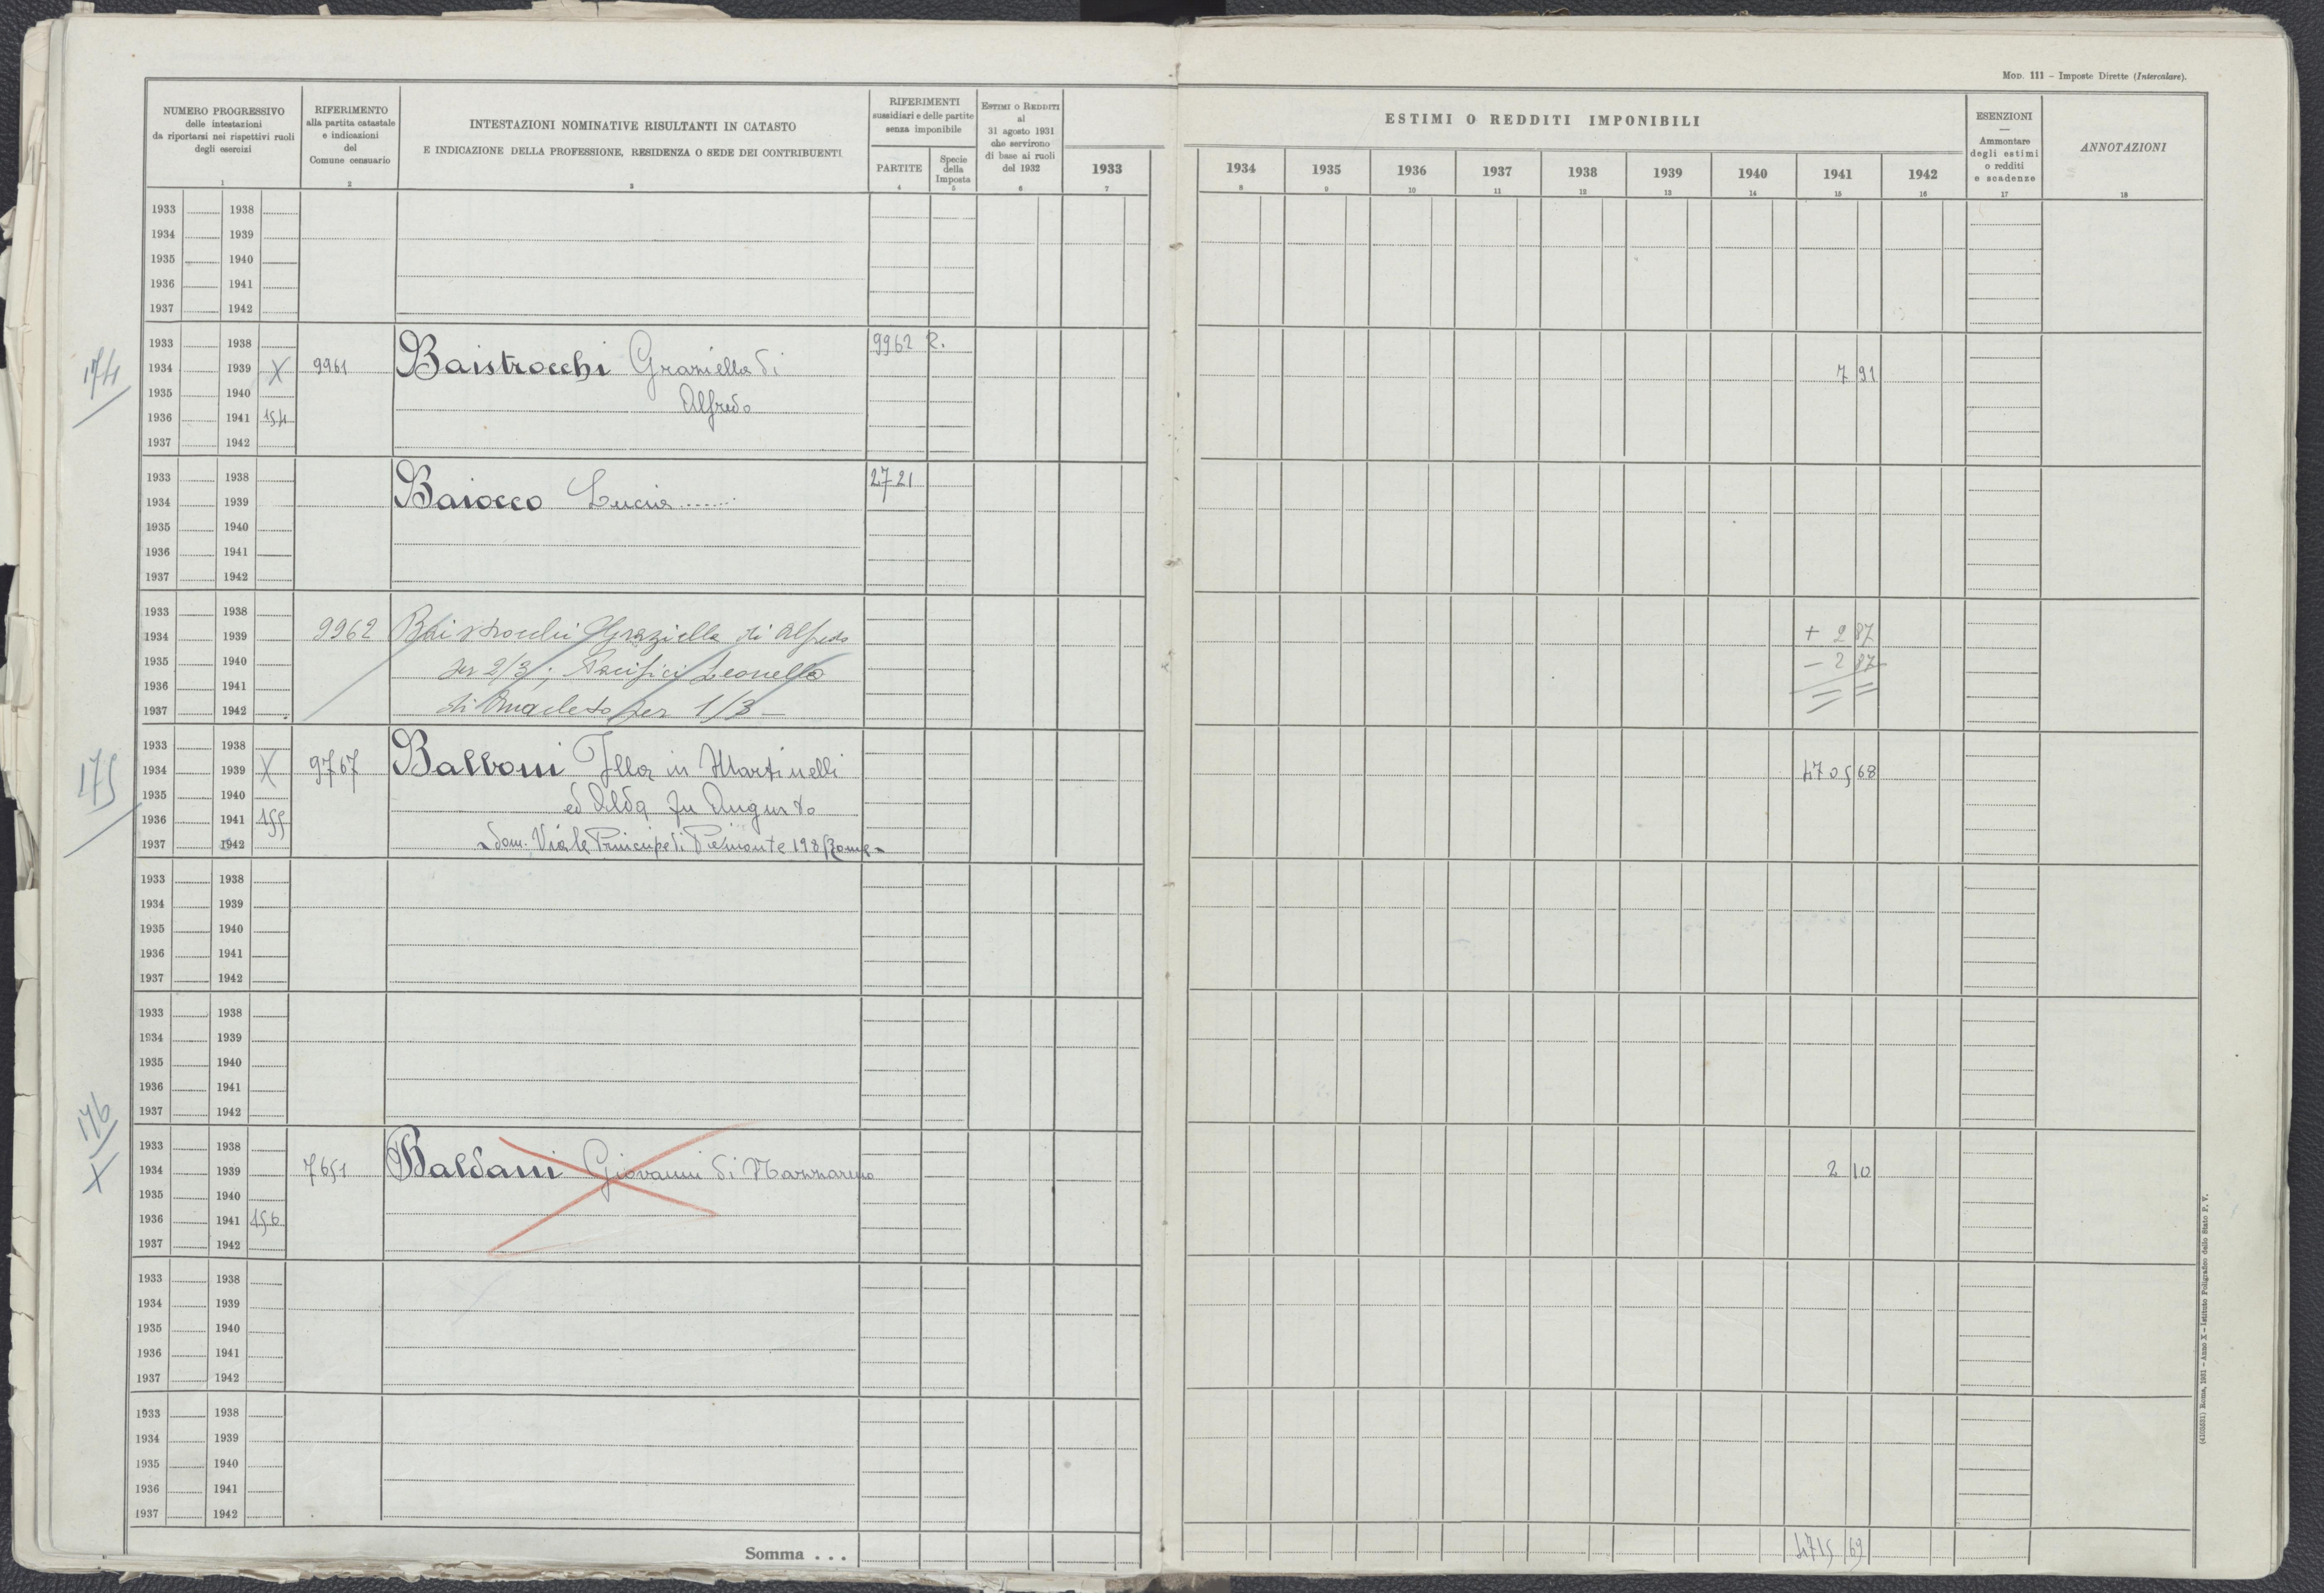 MOD. 111 – Imposte Dirette (Intercalare).
NUMERO PROGRESSIVO
delle intestazioni
da riportarsi nei rispettivi ruoli
degli esercizi
1
RIFERIMENTO
alla partita catastale
e indicazioni
del
Comune censuario
2
INTESTAZIONI NOMINATIVE RISULTANTI IN CATASTO
E INDICAZIONE DELLA PROFESSIONE, RESIDENZA O SEDE DEI CONTRIBUENTI
3
RIFERIMENTI
sussidiari e delle partite
senza imponibile
PARTITE
4
Specie
della
Imposta
5
ESTIMI O REDDITI
al
31 agosto 1931
che servirono
di base ai ruoli
del 1932
6
ESTIMI O REDDITI IMPONIBILI
1933 1934 1935 1936 1937 1938 1939 1940 1941 1942
7 8 9 10 11 12 13 14 15 16
ESENZIONI
—
Ammontare
degli estimi
o redditi
e scadenze
17
ANNOTAZIONI
18
1933 1938
1934 1939
1935 1940
1936 1941
1937 1942
174
1933 1938 9962 R.
1934 1939 X 9961 Baistrocchi Graziella di 7 91
1935 1940 Alfredo
1936 1941 154
1937 1942
1933 1938 2721
1934 1939 Baiocco Lucia
1935 1940
1936 1941
1937 1942
1933 1938
1934 1939 9962 Baistrocchi Graziella di Alfredo + 2 87
1935 1940 per 2/3; Pacifici Leonello – 2 87
1936 1941
1937 1942 di Anacleto per 1/3 –
175
1933 1938
1934 1939 X 9767 Balboni Illa in Martinelli 4705 68
1935 1940 ed Alda fu Augusto
1936 1941 155
1937 1942 dom. Viale Principe di Piemonte 198 Roma
1933 1938
1934 1939
1935 1940
1936 1941
1937 1942
1933 1938
1934 1939
1935 1940
1936 1941
1937 1942
176
X
1933 1938
1934 1939 7651 Baldani Giovanni di Nazzareno 2 10
1935 1940
1936 1941 156
1937 1942
1933 1938
1934 1939
1935 1940
1936 1941
1937 1942
1933 1938
1934 1939
1935 1940
1936 1941
1937 1942
Somma . . . 4715 69
(4103581) Roma, 1931 – Anno X – Istituto Poligrafico dello Stato P. V.